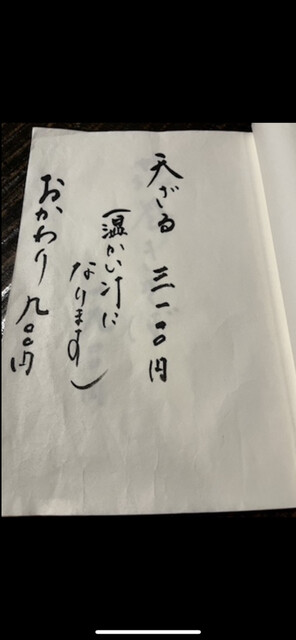 天ざる 三一〇〇円
(温かい汁に
なります)
おかわり 九〇〇円